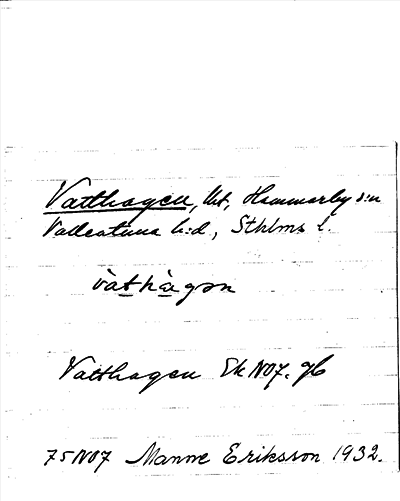 Vatthagen, lht, Hammarby s:n
Vallentuna h:d, Sthlms l.
vàthàgən
Vatthagen Ek NO7. gb
75NO7 Manne Eriksson 1932.